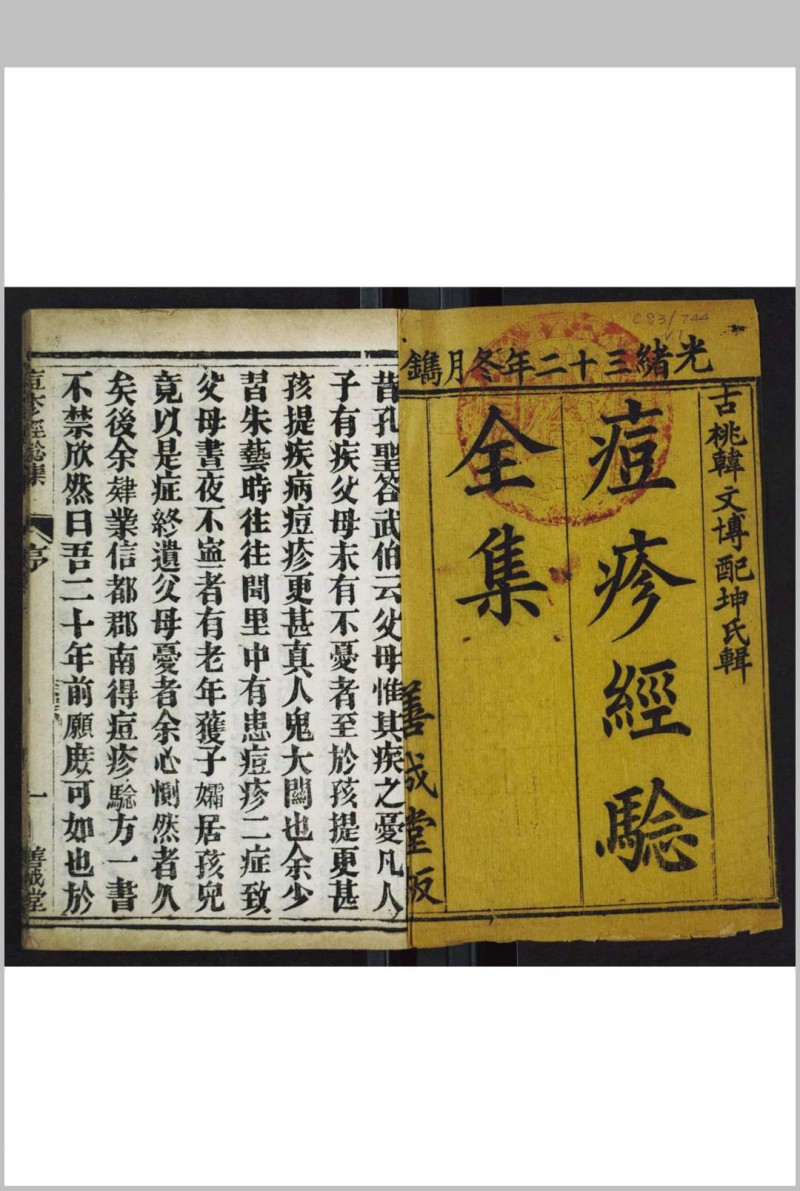 光緒三十二年冬月鐫
古桃韓文博配坤氏輯
痘疹經騐
全集
善成堂板
昔孔聖答武伯云父母惟其疾之憂凡人
子有疾父母未有不憂者至於孩提更甚
孩提疾病痘疹更甚真人鬼大關也余少
習朱藝時往往閭里中有患痘疹二症致
父母晝夜不寍者有老年獲子孀居孩兒
竟以是症終遺父母憂者余心惻然者久
矣後余肄業信都郡南得痘疹騐方一書
不禁欣然曰吾二十年前願庶可如也於
痘疹經騐集
序
一
善成堂
C83/744
V1